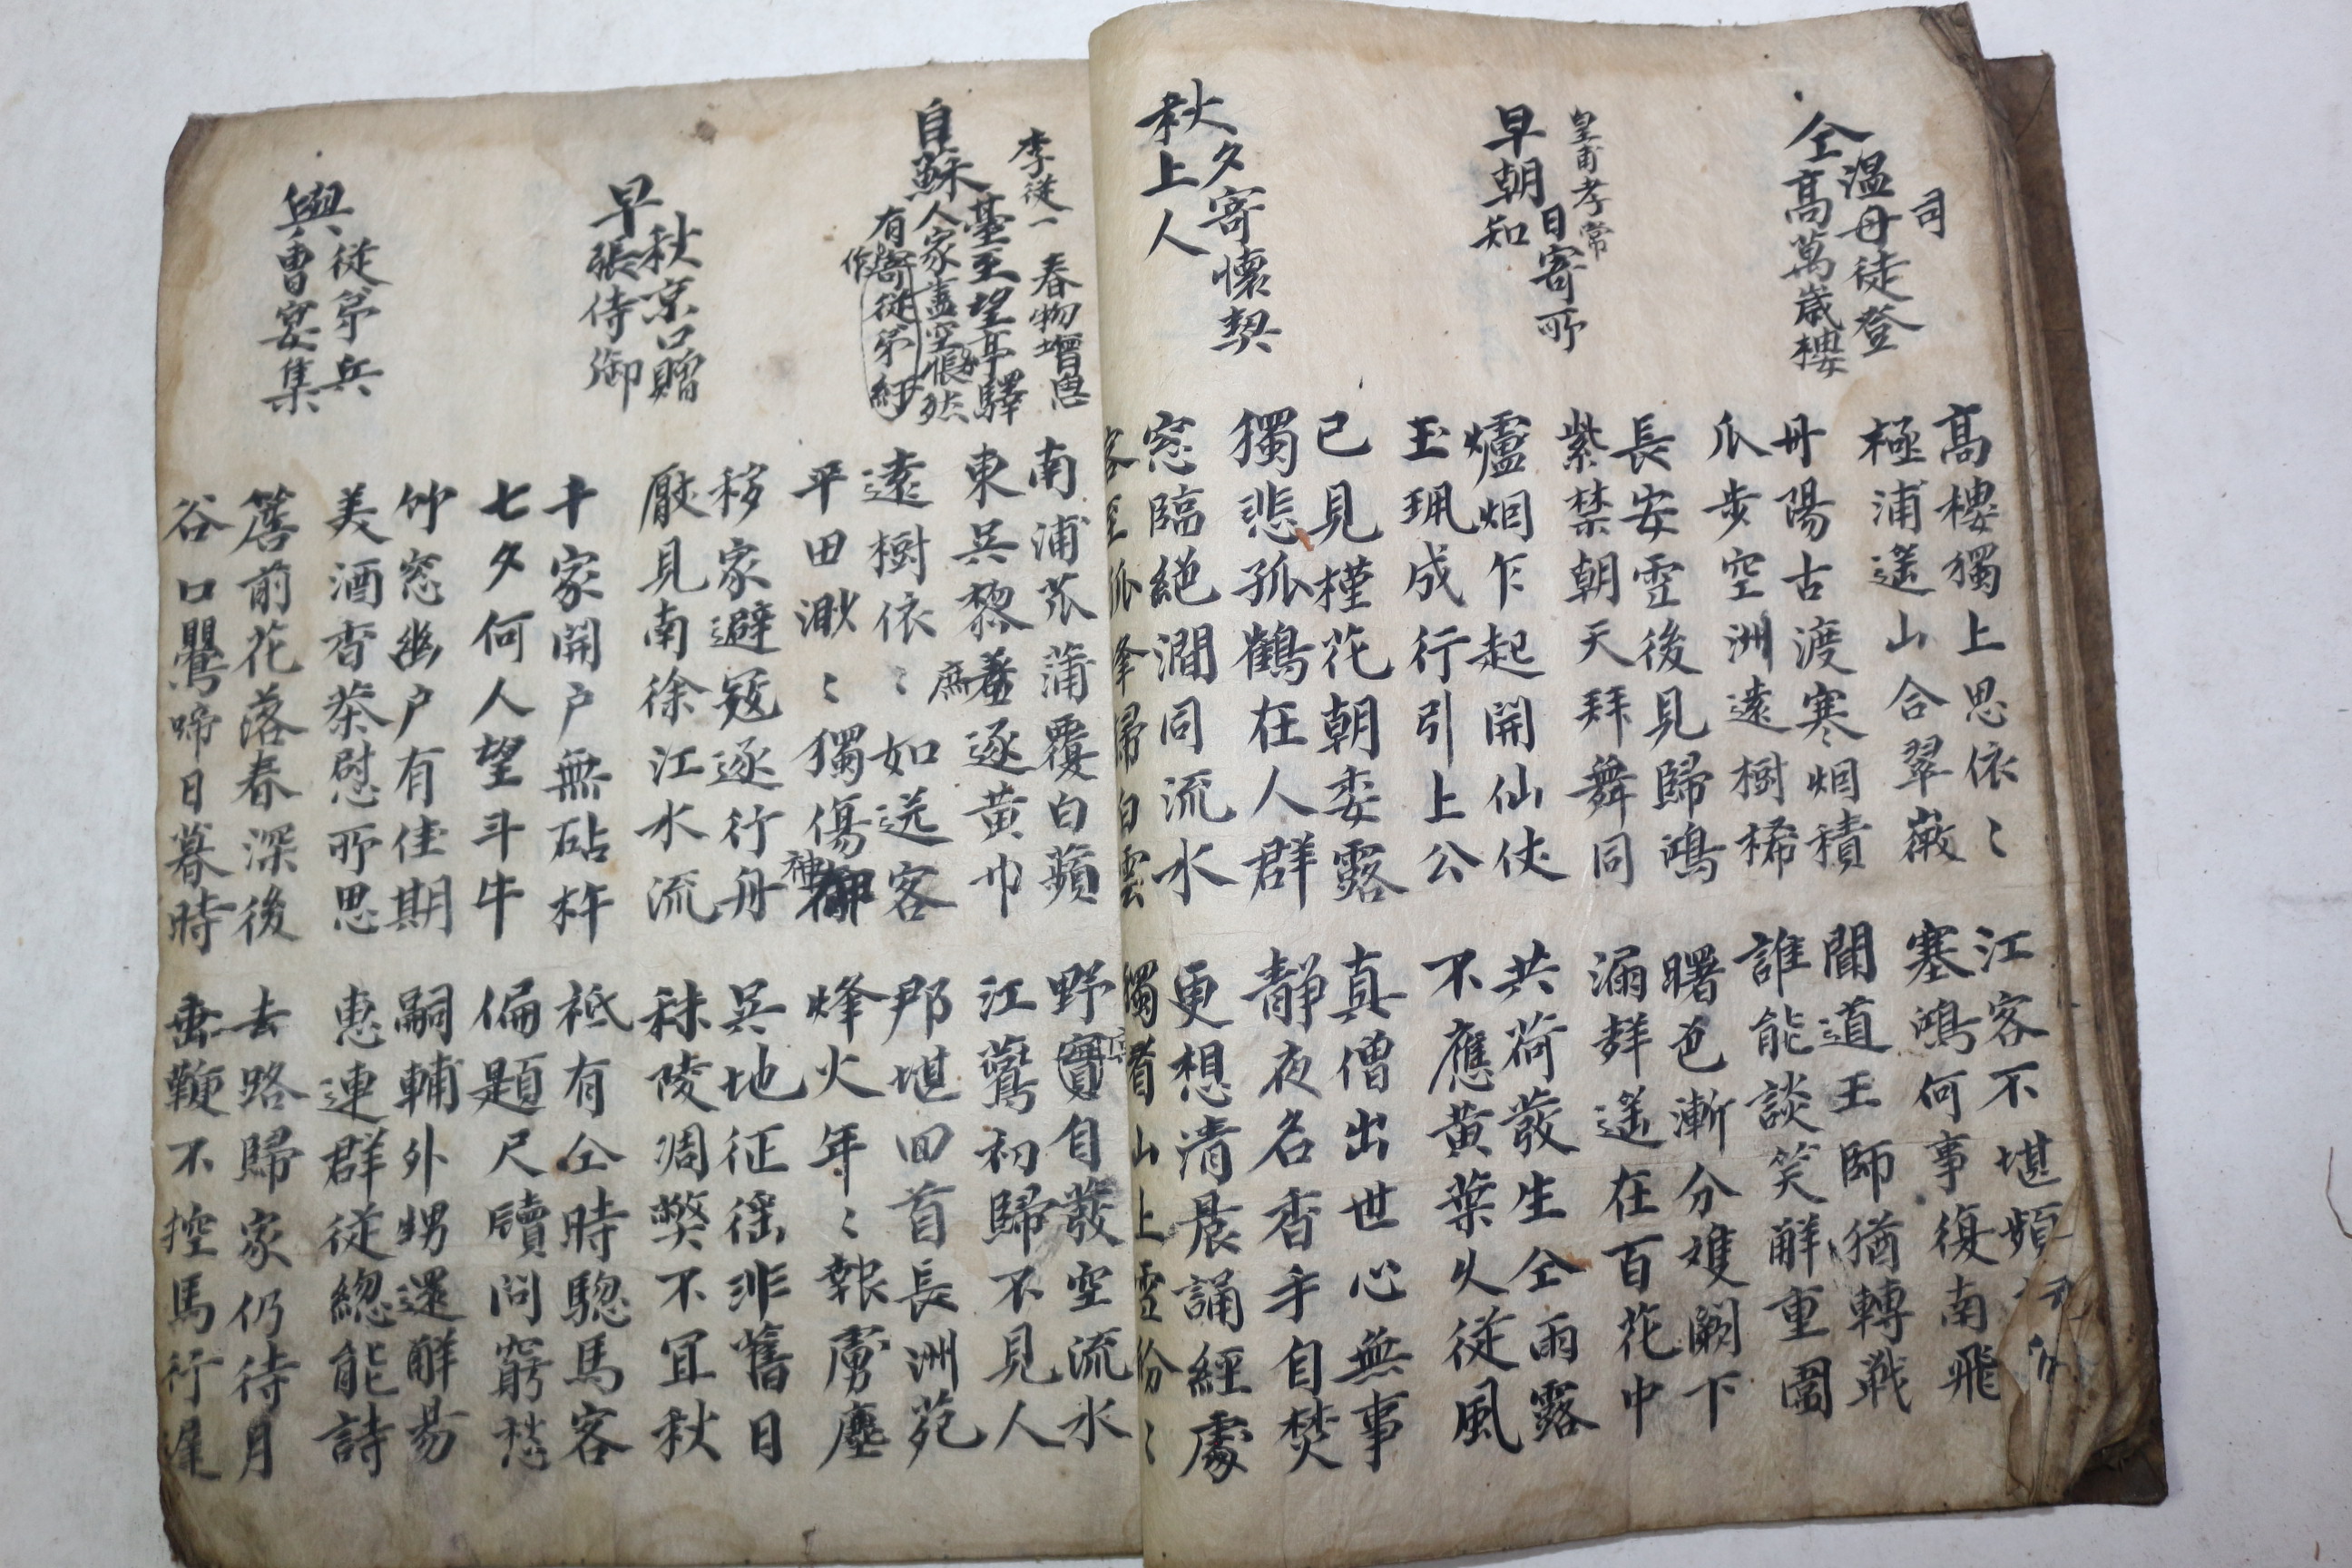 司
仝温丹徒登
高萬歲樓
高樓獨上思依〻
江客不堪頻
極浦遥山合翠薇
塞鴻何事復南飛
丹陽古渡寒烟積
聞道王師猶轉戰
瓜步空洲遠樹稀
誰能談笑解重圍
皇甫孝常
早朝日寄所
知
長安雪後見歸鴻
曙色漸分雙闕下
紫禁朝天拜舞同
漏聲遥在百花中
爐烟乍起開仙仗
共荷發生仝雨露
玉珮成行引上公
不應黄葉久從風
秋夕寄懷契
上人
已見槿花朝委露
真僧出世心無事
獨悲孤鶴在人群
靜夜名香手自焚
窓臨絶澗同流水
更想清晨誦經處
客至孤峯歸白雲
獨看山上雪份〻
李從一
春物增思
自蘇臺至望亭驛
人家盡空悵然
有作寄從弟紓
南浦菰蒲覆白蘋
野實自發空流水
東吳黎庶逐黄巾
江鷰初歸不見人
遠樹依〻如送客
那堪回首長洲苑
平田渺〻獨傷神
烽火年〻報虜塵
早秋京口贈
張侍御
移家避冦逐行舟
吳地征徭非舊日
厭見南徐江水流
秣陵凋弊不宜秋
十家開户無砧杵
祗有仝時驄馬客
七夕何人望斗牛
偏題尺牘問窮愁
與從弟兵
曹宴集
竹窓幽户有佳期
嗣輔外甥還解易
美酒香茶慰所思
惠連群從總能詩
簷前花落春深後
去路歸家仍待月
谷口鸎啼日暮時
垂鞭不控馬行遲